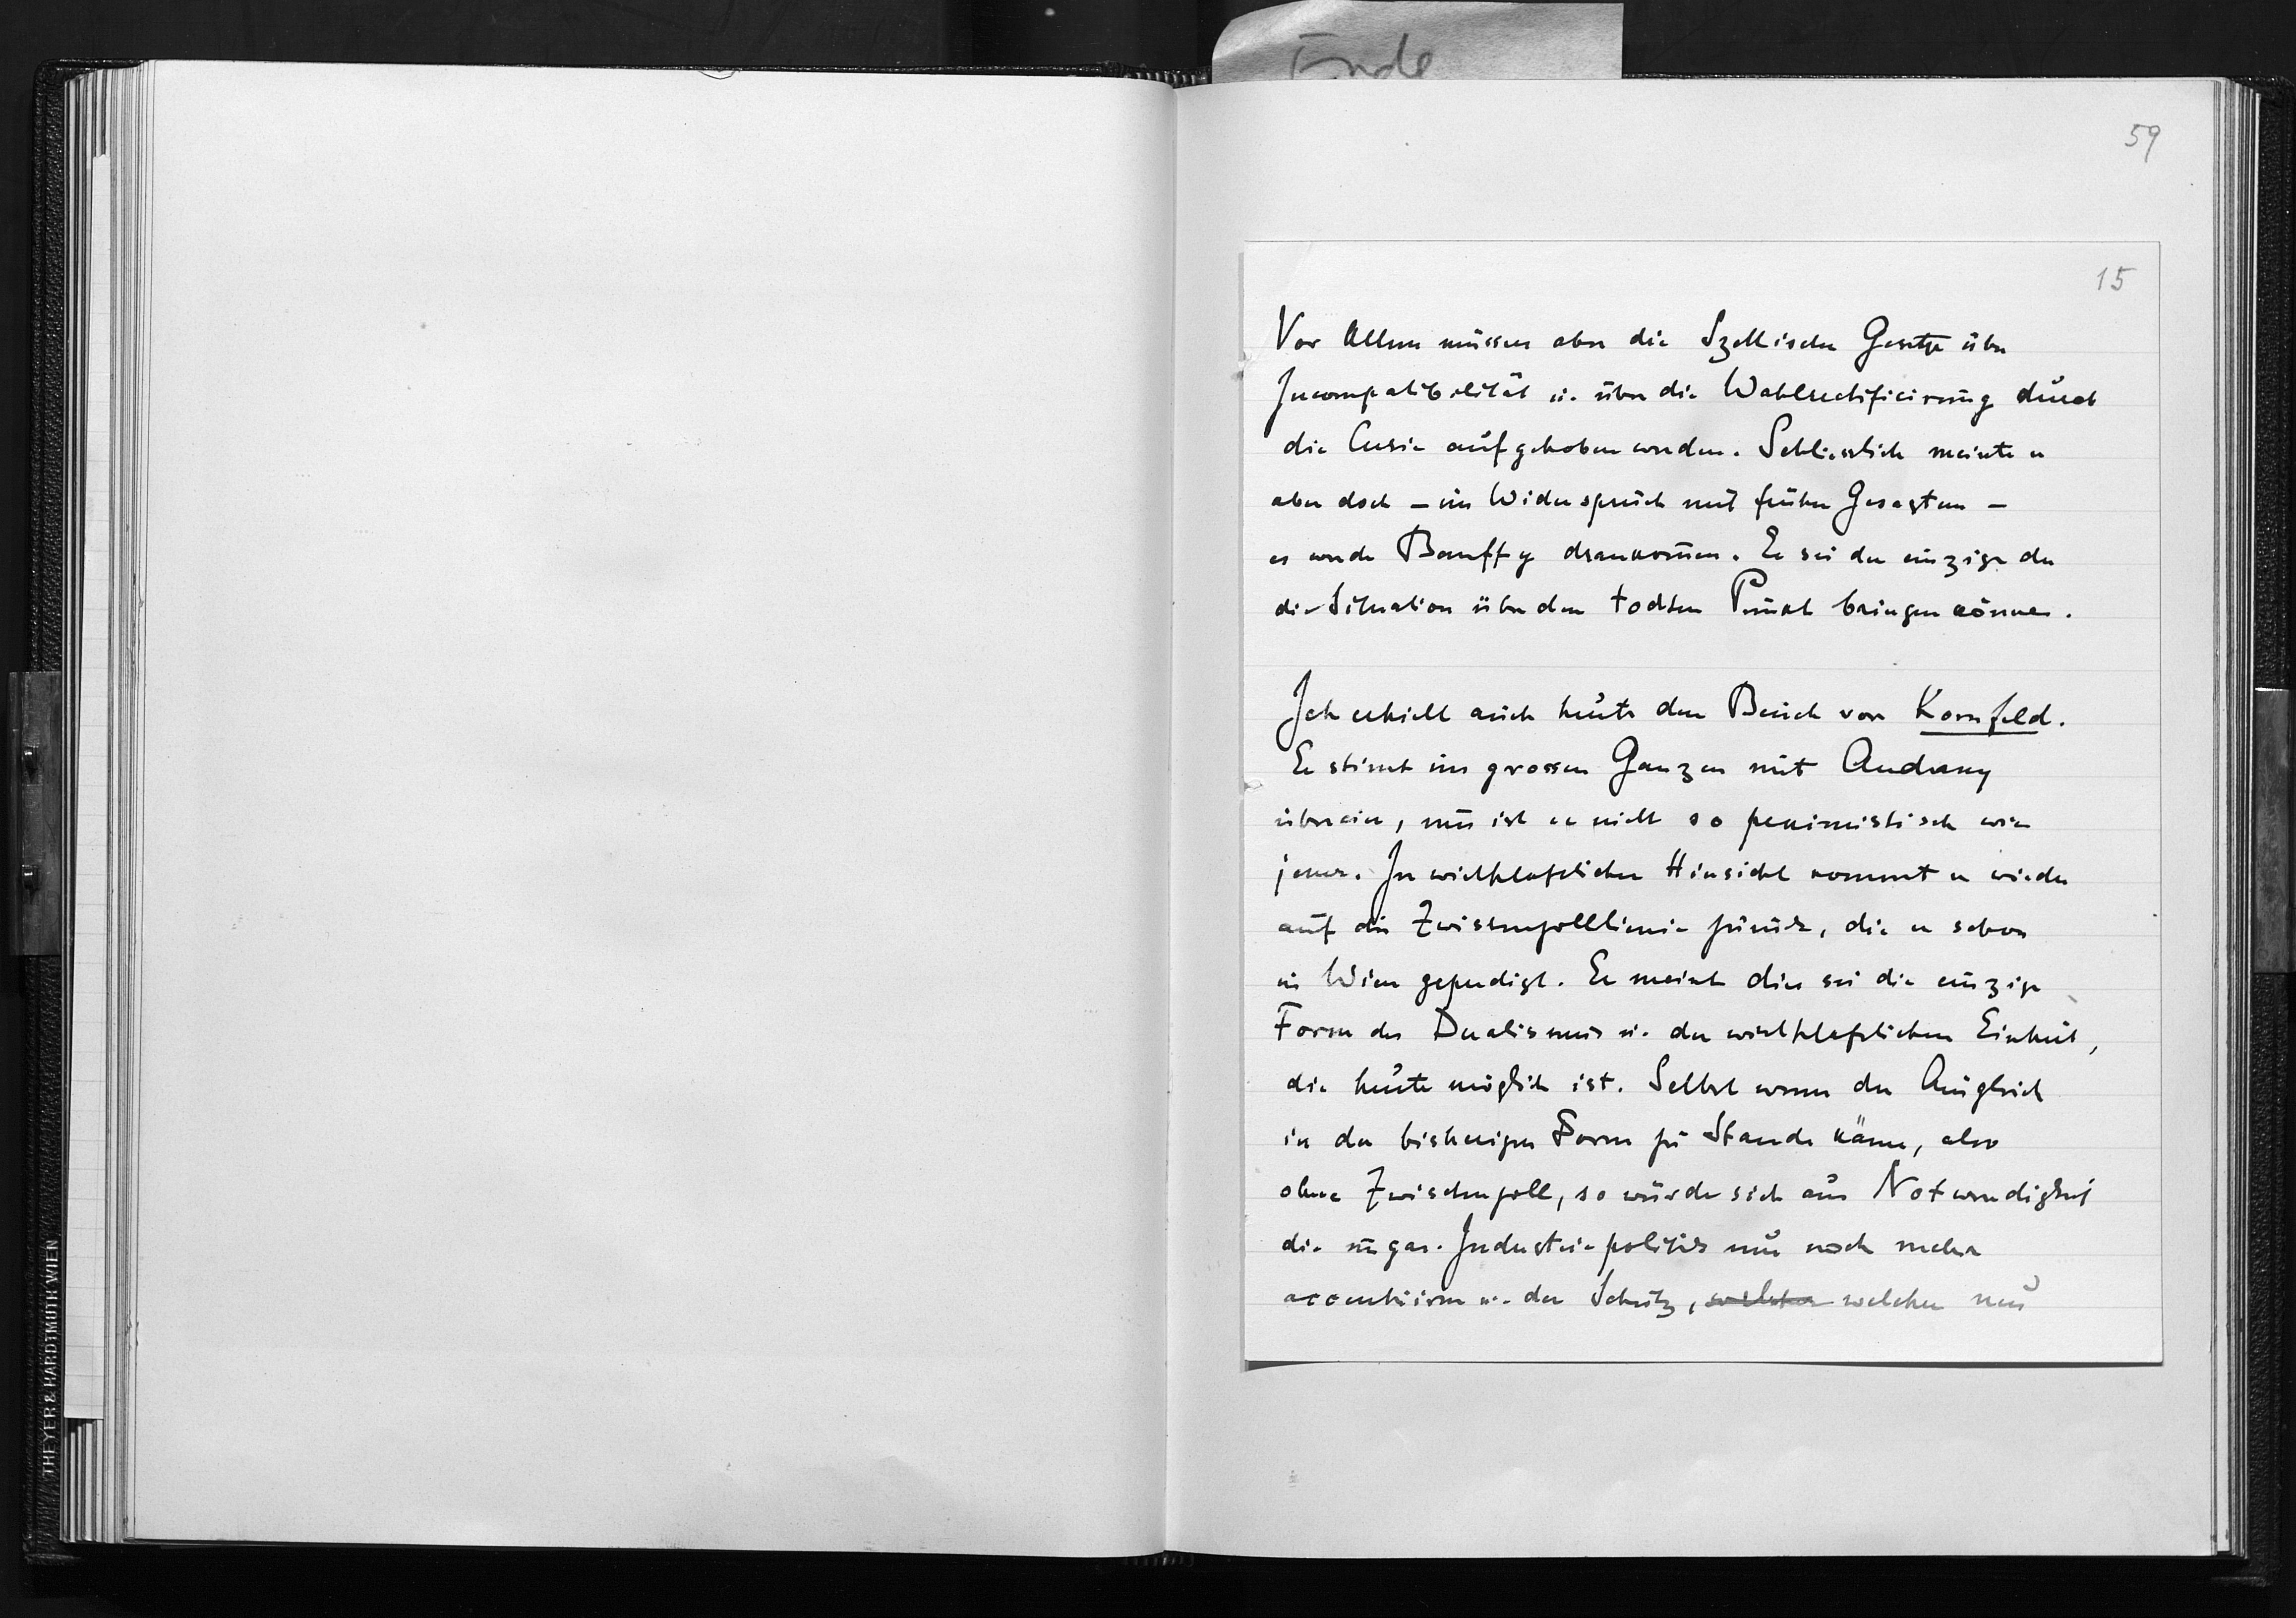 Ende
59
15
Vor Allem müssen aber die Szellischen Gesetze über
Incompatibilität u. über die Wahlrectificirung durch
die Curie aufgehoben werden. Schliesslich meinte er
aber doch – im Widerspruch mit früher Gesagtem –
es werde Banffy drankommen. Er sei der einzige der
die Situation über den todten Punkt bringen könne.
Ich erhielt auch heute den Besuch von Kornfeld.
Er stimt im grossen Ganzen mit Andrassy
überein, nur ist er nicht so pessimistisch wie
jener. In wirthschaftlicher Hinsicht kommt er wieder
auf die Zwischenzolllinie zurück, die er schon
in Wien gepredigt. Er meint dies sei die einzige
Form des Dualismus u. der wirthschaftlichen Einheit,
die heute möglich ist. Selbst wenn der Ausgleich
in der bisherigen Form zu Stande käme, also
ohne Zwischenzoll, so würde sich aus Notwendigkeit
die ungar. Industriepolitik nur noch mehr
accentuiren u. der Schutz, welcher welcher nur
THEYER & HARDTMUTH WIEN